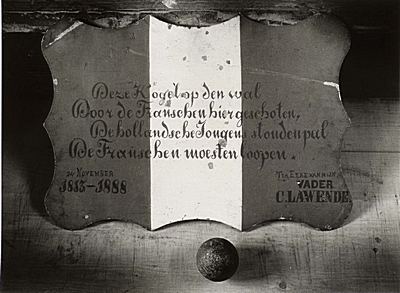 Deze Kogel op den wal
Door de Franschen hier geschoten,
De hollandsche Jongens stonden pal
De Franschen moesten loopen.
24 NOVEMBER
1813-1888
TER EERE VAN MIJN
VADER
C. LAWENDE.